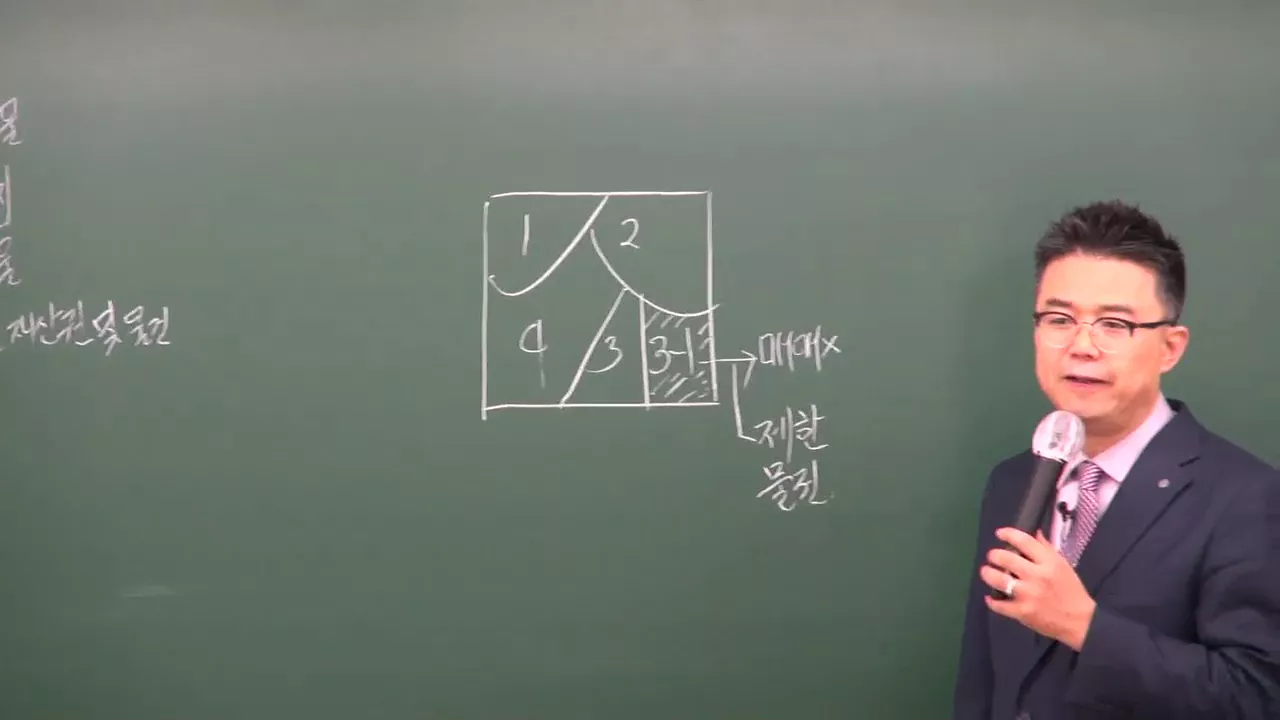 물
물
재산권 및 물건
1
2
4
3
3-1
매매×
제한
물권